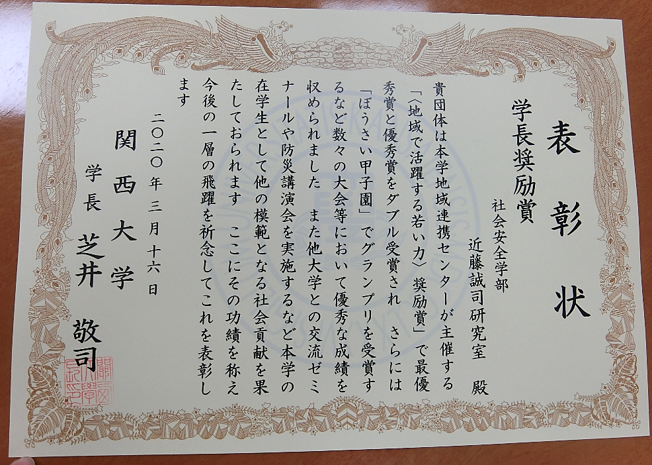 表彰状
学長奨励賞
社会安全学部
近藤誠司研究室 殿
貴団体は本学地域連携センターが主催する
「〈地域で活躍する若い力〉奨励賞」で最優
秀賞と優秀賞をダブル受賞され さらには
「ぼうさい甲子園」でグランプリを受賞す
るなど数々の大会等において優秀な成績を
収められました また他大学との交流ゼミ
ナールや防災講演会を実施するなど本学の
在学生として他の模範となる社会貢献を果
たしておられます ここにその功績を称え
今後の一層の飛躍を祈念してこれを表彰し
ます
二〇二〇年三月十六日
関西大学
学長 芝井敬司